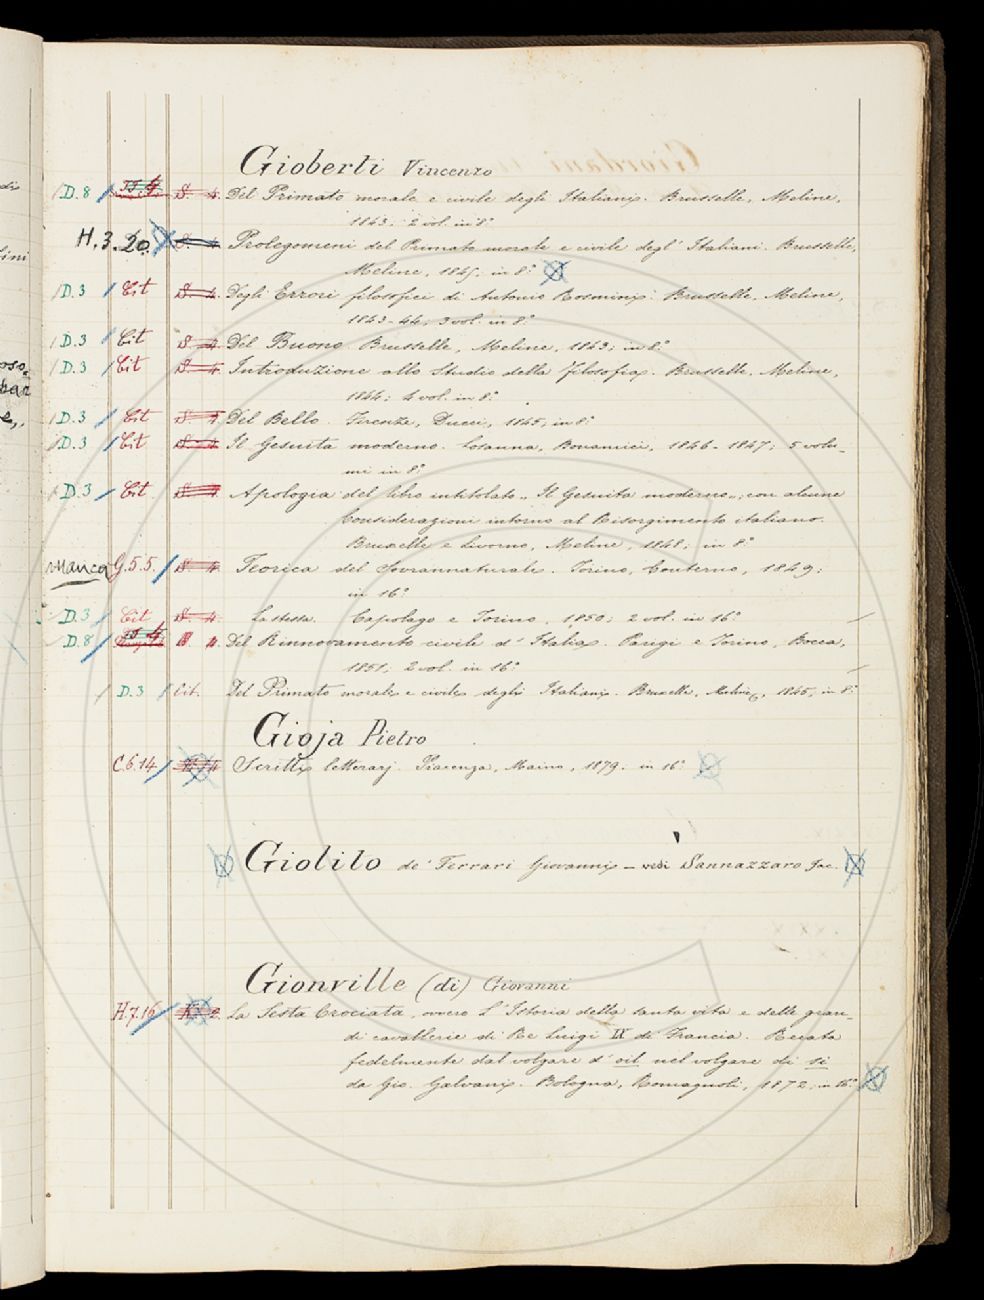 Gioberti Vincenzo
D. 8 Del Primato morale e civile degli Italiani. Brusselle, Meline,
1843; 2 vol. in 8°
H. 3. 20. Prolegomeni del Primato morale e civile degl' Italiani. Brusselle,
Meline, 1845, in 8°
D. 3 Cit S. 4. Degli Errori filosofici di Antonio Rosmini. Brusselle, Meline,
1843-44; 3 vol. in 8°
D. 3 Cit S. 4 Del Buono Brusselle, Meline, 1843; in 8°
D. 3 Cit S. 4 Introduzione allo Studio della filosofia. Brusselle, Meline,
1844; 4 vol. in 8°
D. 3 Cit S. 4 Del Bello. Firenze, Ducci, 1845; in 8°
D. 3 Cit S. 4 Il Gesuita moderno. Losanna, Bonamici, 1846-1847; 5 volu-
mi in 8°
D. 3 Cit S. 4 Apologia del libro intitolato "Il Gesuita moderno", con alcune
Considerazioni intorno al Risorgimento italiano.
Bruxelle e Livorno, Meline, 1848; in 8°
manca G. 5. 5. S. 4 Teorica del Sovrannaturale. Torino, 1849;
in 16°
D. 3 Cit S. 4. La stessa. Capolago e Torino, 1850; 2 vol. in 16°
D. 8 4. Del Rinnovamento civile d' Italia. Parigi e Torino, Bocca,
1851; 2 vol. in 16°
D. 3 Cit. Del Primato morale e civile degli Italiani. Bruxelle, Meline, 1845, in 8°
Gioja Pietro
C. 6. 14 Scritti letterarj. Piacenza, Maino, 1879. in 16°
Giolito de' Ferrari Giovanni – vedi Sannazzaro Jac.
Gionville (di) Giovanni
H 7. 16 La Sesta Crociata, ovvero L' Istoria della santa vita e delle gran-
di cavallerie di Re Luigi IX di Francia. Recata
fedelmente dal volgare d' oil nel volgare di si
da Gio. Galvani. Bologna, Romagnoli, 1872, in 16°